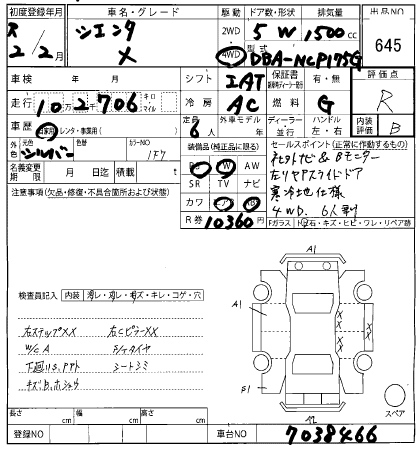 初度登録年月 車名・グレード 駆動 ドア数・形状 排気量 出品NO
R 2/2月 シエンタ X 2WD 4WD 5 W 1500 cc 645
型式 DBA-NCP175G
車検 年 月 シフト IAT 保証書 有・無 評価点
走行 102706 キロ マイル 冷房 AC 燃料 G R
車歴 自家用・レンタ・事業用( ) 定員 6人 外車モデル 年 ディーラー 並行 ハンドル 左・右 内装評価 B
外色 元色 シルバー 色替 カラーNO 1F7
装備品(純正品に限る) セールスポイント(正常に作動するもの)
名義変更期限 月 日 積載 t
PS PW AW
社外ナビ&Bモニター
SR TV ナビ
左リヤPスライドドア
注意事項(欠品・修復・不具合箇所および状態)
カワ エアB
寒冷地仕様
4WD. 6人乗り
R券 10360円
Fガラス 飛石・キズ・ヒビ・ワレ・リペア跡
検査員記入 内装 汚レ・ハレ・キズ・キレ・コゲ・穴
A1
A1
右ステップXX 右CピラーXX
W/C A
下廻りS.
シートシミ
キズB.ホシュウ
S1
A2
スペア
長さ cm 幅 cm 高さ cm
登録NO 車台NO 7038466